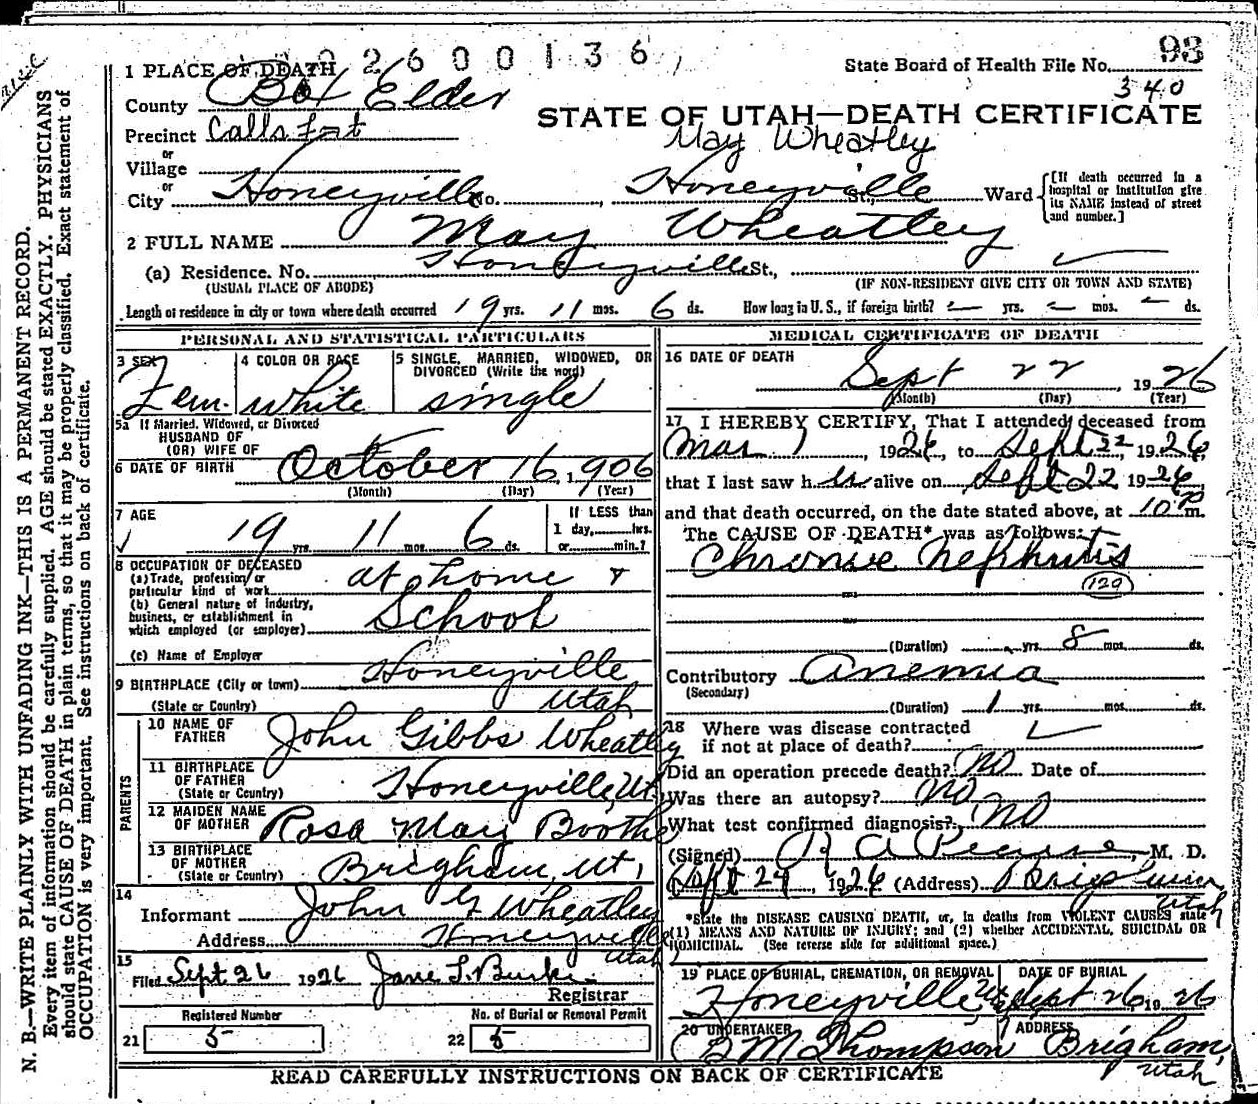 2600136
93
1 PLACE OF DEATH
State Board of Health File No.
340
County Box Elder
STATE OF UTAH—DEATH CERTIFICATE
Precinct Calls Fort
May Wheatley
or
Village
or
City Honeyville No. , Honeyville St., Ward
[If death occurred in a hospital or institution give its NAME instead of street and number.]
2 FULL NAME May Wheatley
(a) Residence. No. Honeyville St.,
(USUAL PLACE OF ABODE) (IF NON-RESIDENT GIVE CITY OR TOWN AND STATE)
Length of residence in city or town where death occurred 19 yrs. 11 mos. 6 ds. How long in U. S., if foreign birth? – yrs. – mos. – ds.
PERSONAL AND STATISTICAL PARTICULARS
3 SEX Fem.
4 COLOR OR RACE white
5 SINGLE, MARRIED, WIDOWED, OR DIVORCED (Write the word) single
5a If Married, Widowed, or Divorced
HUSBAND OF
(OR) WIFE OF
6 DATE OF BIRTH October 16, 1906
(Month) (Day) (Year)
7 AGE
19 yrs. 11 mos. 6 ds.
If LESS than
1 day, hrs.
or min.?
8 OCCUPATION OF DECEASED
(a) Trade, profession or particular kind of work at home &
(b) General nature of industry, business, or establishment in which employed (or employer) School
(c) Name of Employer
9 BIRTHPLACE (City or town) Honeyville
(State or Country) Utah
PARENTS
10 NAME OF FATHER John Gibbs Wheatley
11 BIRTHPLACE OF FATHER (State or Country) Honeyville, Ut.
12 MAIDEN NAME OF MOTHER Rosa May Boothe
13 BIRTHPLACE OF MOTHER (State or Country) Brigham, Ut,
14
Informant John G Wheatley
Address Honeyville
Utah
15
Filed Sept 26 1926 Jane L. Burke
Registrar
Registered Number
21 5
No. of Burial or Removal Permit
22 5
MEDICAL CERTIFICATE OF DEATH
16 DATE OF DEATH
Sept 22, 1926
(Month) (Day) (Year)
17 I HEREBY CERTIFY, That I attended deceased from
Mar 1, 1926, to Sept 22, 1926
that I last saw her alive on Sept 22 1926
and that death occurred, on the date stated above, at 10 P m.
The CAUSE OF DEATH* was as follows:
Chronic Nephritis
129
(Duration) yrs. 8 mos. ds.
Contributory Anemia
(Secondary)
(Duration) 1 yrs. mos. ds.
18 Where was disease contracted
if not at place of death?
Did an operation precede death? No Date of
Was there an autopsy? No
What test confirmed diagnosis? No
(Signed) R A Pearse, M. D.
Sept 24, 1926 (Address) Brigham
Utah
*State the DISEASE CAUSING DEATH, or, in deaths from VIOLENT CAUSES state
(1) MEANS AND NATURE OF INJURY; and (2) whether ACCIDENTAL, SUICIDAL OR
HOMICIDAL. (See reverse side for additional space.)
19 PLACE OF BURIAL, CREMATION, OR REMOVAL
Honeyville
DATE OF BURIAL
Sept 26 1926
20 UNDERTAKER
B M Thompson
ADDRESS
Brigham,
Utah
READ CAREFULLY INSTRUCTIONS ON BACK OF CERTIFICATE
N. B.—WRITE PLAINLY WITH UNFADING INK—THIS IS A PERMANENT RECORD.
Every item of information should be carefully supplied. AGE should be stated EXACTLY. PHYSICIANS
should state CAUSE OF DEATH in plain terms, so that it may be properly classified. Exact statement of
OCCUPATION is very important. See instructions on back of certificate.